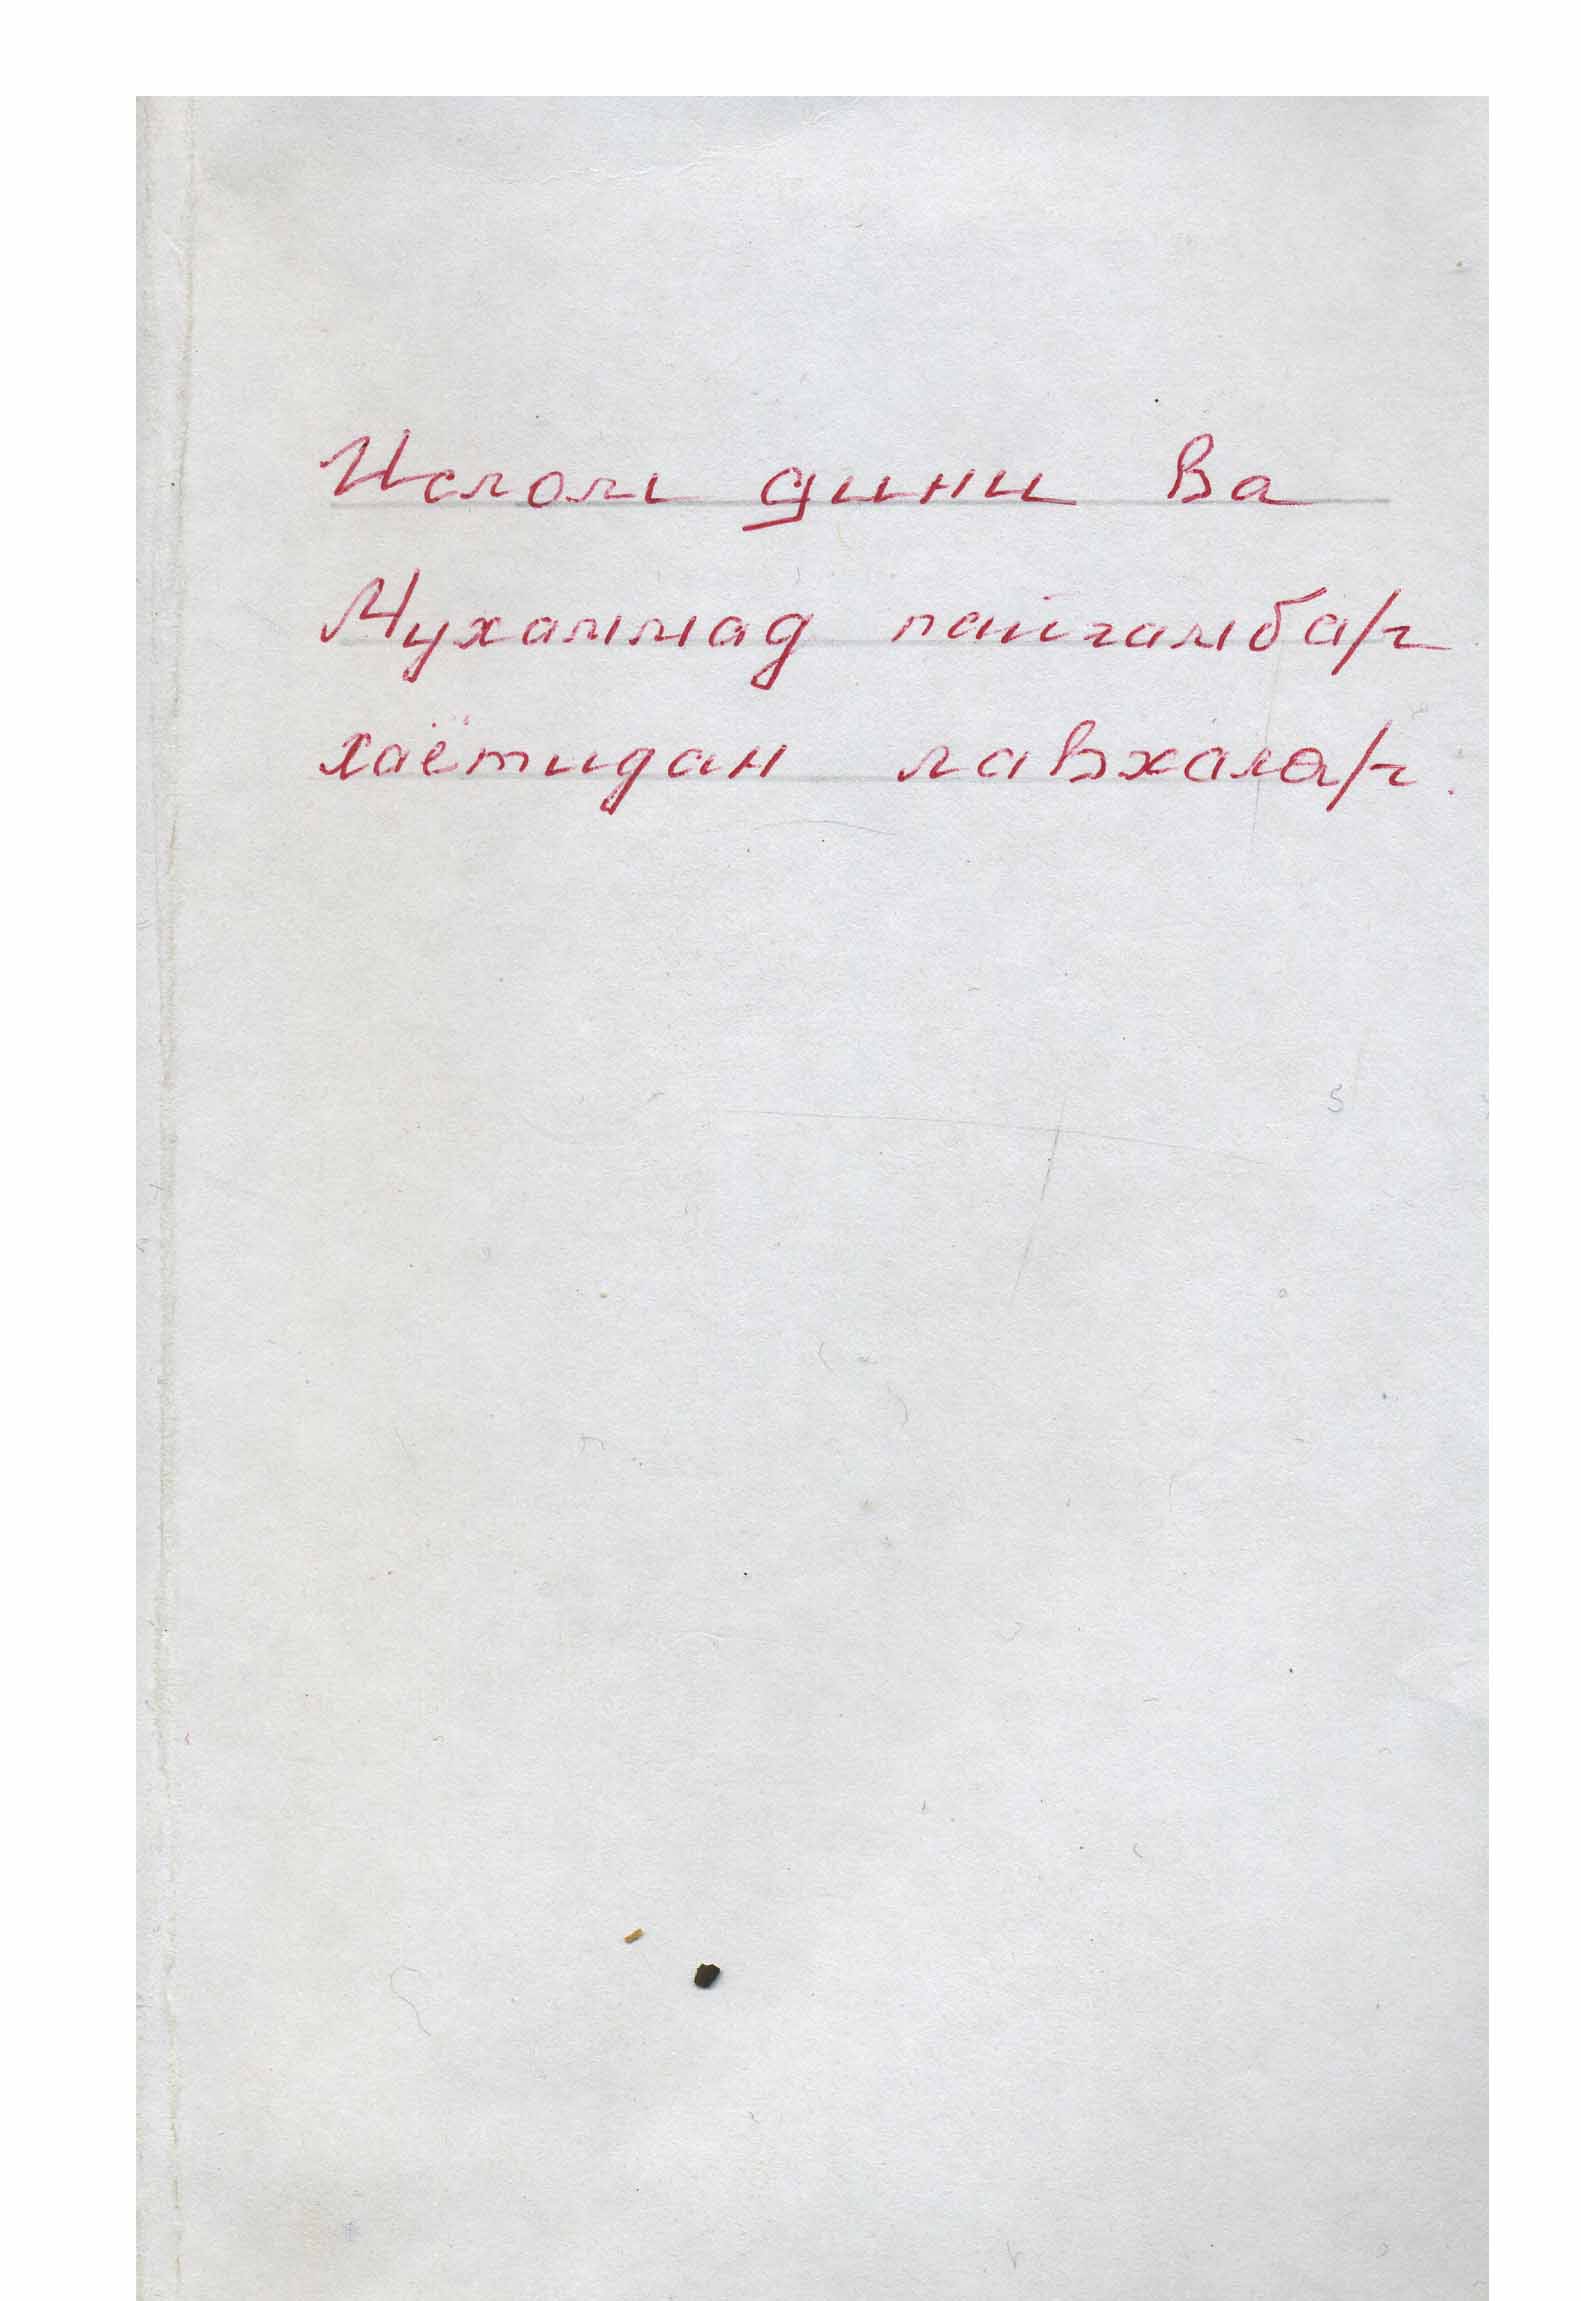 Ислом дини ва
Мухаммад пайгамбар
хаётидан лавхалар.